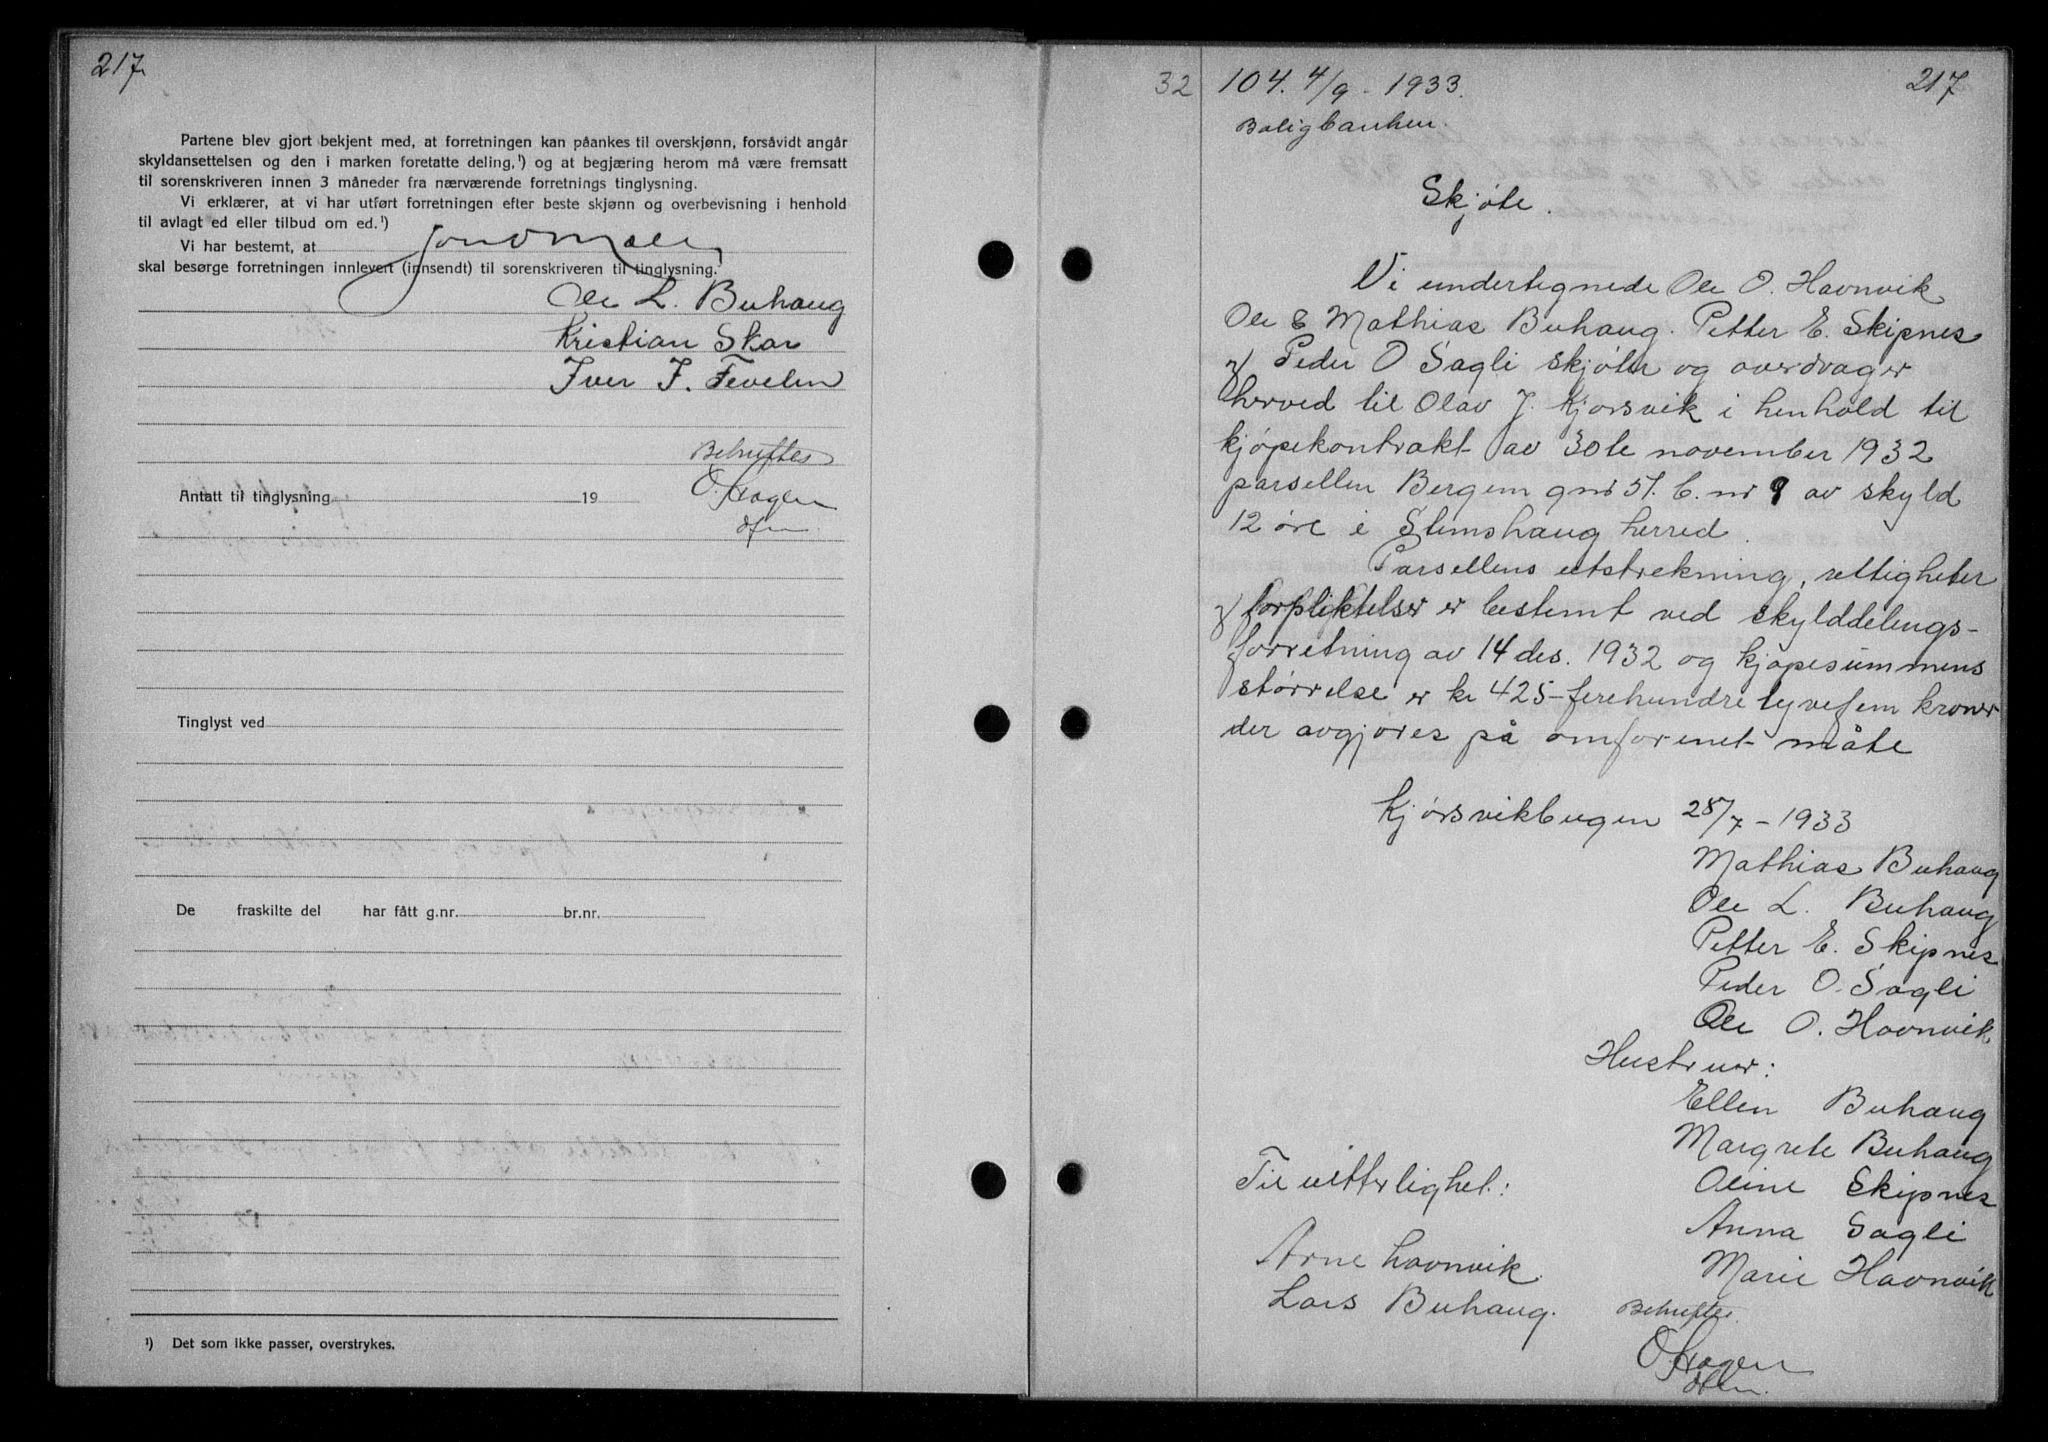 217
Partene blev gjort bekjent med, at forretningen kan påankes til overskjønn, forsåvidt angår
skyldansettelsen og den i marken foretatte deling,¹) og at begjæring herom må være fremsatt
til sorenskriveren innen 3 måneder fra nærværende forretnings tinglysning.
Vi erklærer, at vi har utført forretningen efter beste skjønn og overbevisning i henhold
til avlagt ed eller tilbud om ed.¹)
Vi har bestemt, at
skal besørge forretningen innlevert (innsendt) til sorenskriveren til tinglysning.
Ole L. Buhaug
Kristian Skar
Iver J. Fevelen
Bekreftes
O. Hagen
Antatt til tinglysning 19
Tinglyst ved
De fraskilte del har fått g.nr. br.nr.
¹) Det som ikke passer, overstrykes.
32 104. 4/9 - 1933. 217
Boligbanken.
Skjøte.
Vi undertegnede Ole O. Havnvik
Ole & Mathias Buhaug. Petter E. Skipnes
& Peder O Sagli skjøter og overdrager
herved til Olav J. Kjørsvik i henhold til
kjøpekontrakt av 30te november 1932
parsellen Bergem gnr 51. b. nr 9 av skyld
12 øre i Stemshaug herred.
Parsellens utstrekning, rettigheter
& forpliktelser er bestemt ved skylddelings-
forretning av 14 des. 1932 og kjøpesummens
størrelse er kr 425 - firehundre tyvefem kroner
der avgjøres på omforenet måte
Kjørsvikbugen 28/7 - 1933
Mathias Buhaug
Ole L. Buhaug
Petter E. Skipnes
Peder O. Sagli
Ole O. Havnvik
Hustruer:
Ellen Buhaug
Margrete Buhaug
Oline Skipnes
Anna Sagli
Marie Havnvik
Til vitterlighet:
Arne Havnvik.
Lars Buhaug.
Bekreftes.
O. Hagen